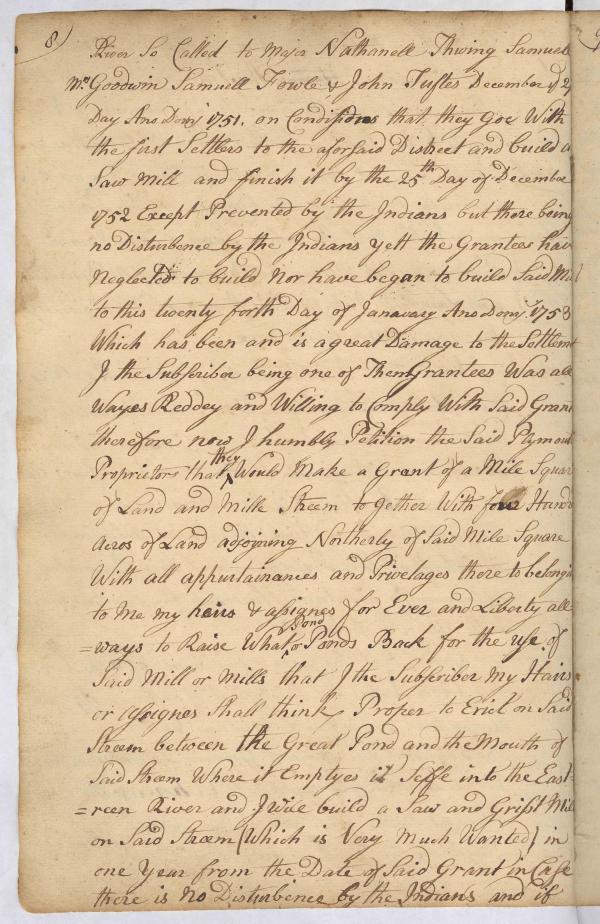 8)
River So Called to Major Nathanell Thwing Samuel
Mrs Goodwin Samuell Fowle & John Tuftes December ye 2
Day Ano Domi 1751. on Condissions that they Goe With
the first Settlers to the aforsaid District and build a
Saw Mill and finish it by the 25th Day of December
1752 Except Prevented by the Indians but there being
no Disturbence by the Indians yett the Grantees have
Neglected to build Nor have began to build Said Mil
to this twenty forth Day of Janavary Ano Domi 1753
Which has been and is a great Damage to the Settlemt
I the Subscriber being one of Them Grantees Was all
Wayes Reddey and Willing to Comply With Said Grant
therefore now I humbly Petition the Said Plymouth
Proprietors that they Would Make a Grant of a Mile Square
of Land and Mille Streem to gether With four Hundr
Acros of Land adjoining Northerly of Said Mile Square
With all appurtainances and Privelages there to belongin
to Me my heirs & assignes for Ever and Liberty all
=ways to Raise What Pond or Ponds Back for the use of
Said Mill or Mills that I the Subscriber My Hairs
or Assignes Shall think Proper to Erict on Said
Streem between the Great Pond and the Mouth of
Said Streem Where it Emptyes it Selfe into the East=
=reen River and I Will build a Saw and Grisst Mill
on Said Streem (Which is Very Much Wanted) in
one Year from the Date of Said Grant in Case
there is No Disturbence by the Indians and if